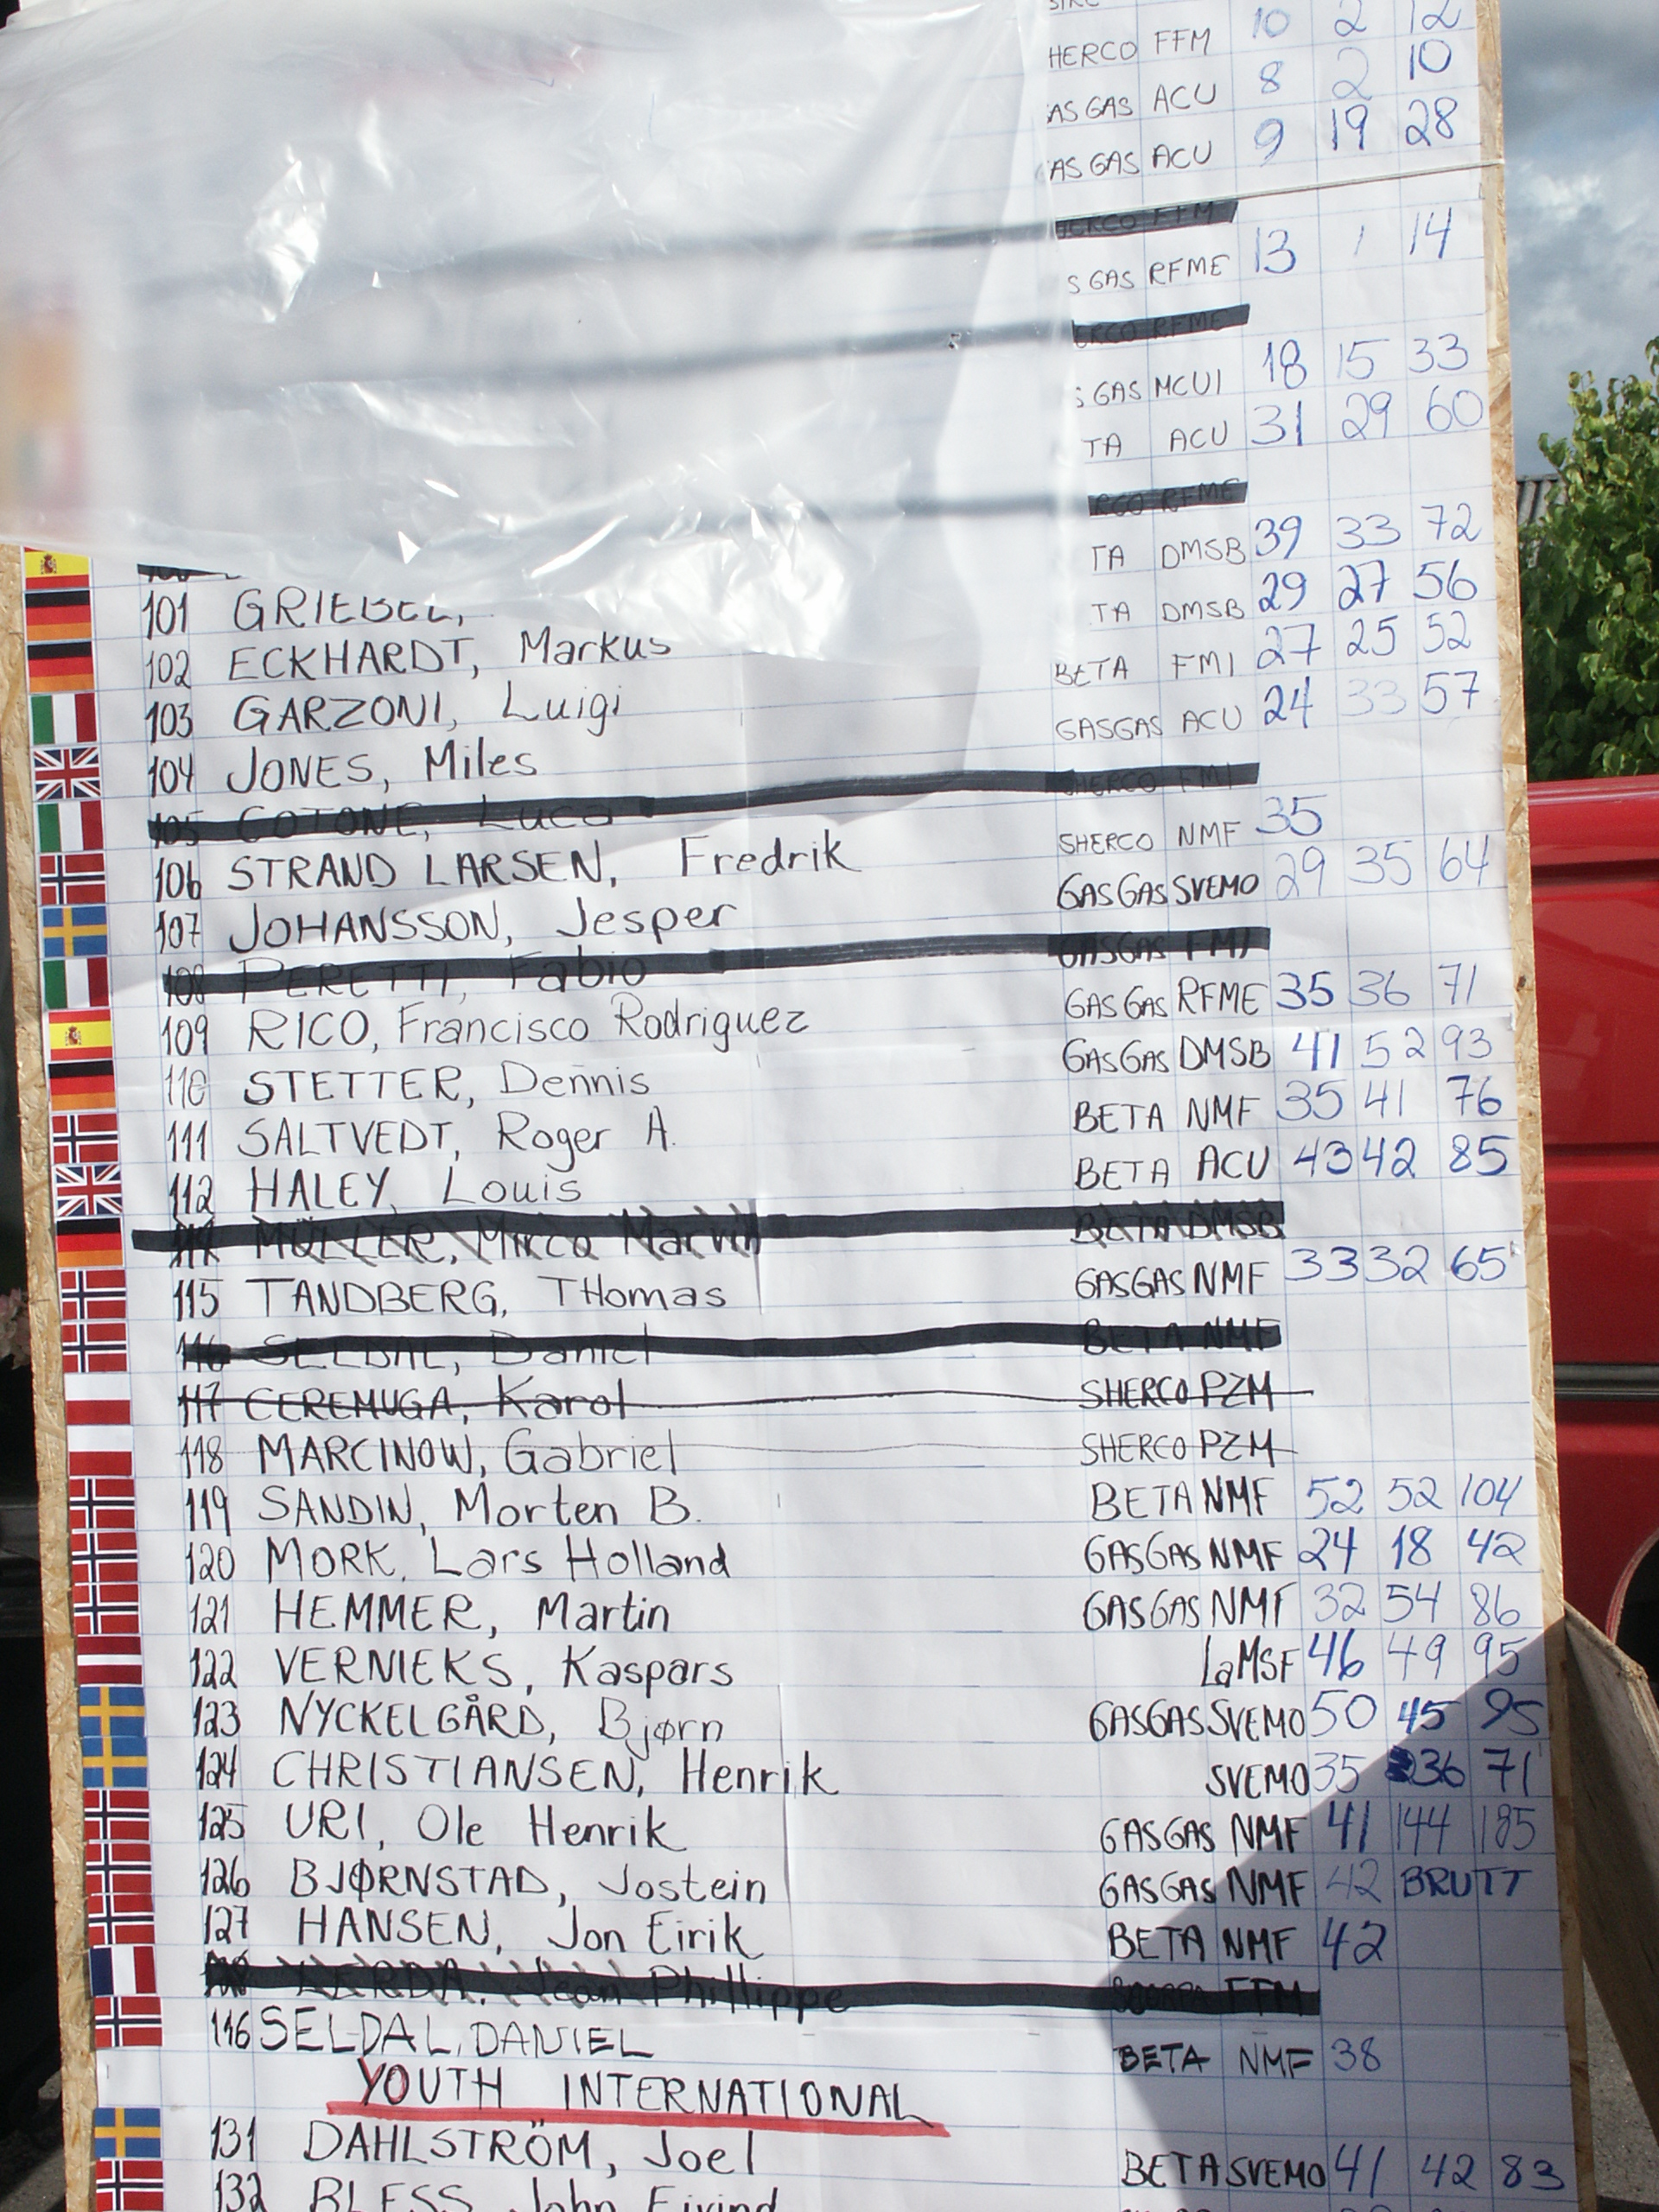 HERCO FFM 10 2 12
AS GAS ACU 8 2 10
AS GAS ACU 9 19 28
ERCO FFM
S GAS RFME 13 1 14
ERCO RFME
GAS MCUI 18 15 33
TA ACU 31 29 60
RCO RFME
101 GRIEBEL, TA DMSB 39 33 72
102 ECKHARDT, Markus TA DMSB 29 27 56
103 GARZONI, Luigi BETA FMI 27 25 52
104 JONES, Miles GASGAS ACU 24 33 57
105 COTONE, Luca SHERCO FMI
106 STRAND LARSEN, Fredrik SHERCO NMF 35
107 JOHANSSON, Jesper GASGAS SVEMO 29 35 64
108 PERETTI, Fabio GASGAS FMI
109 RICO, Francisco Rodriguez GASGAS RFME 35 36 71
110 STETTER, Dennis GASGAS DMSB 41 52 93
111 SALTVEDT, Roger A. BETA NMF 35 41 76
112 HALEY, Louis BETA ACU 43 42 85
114 MÜLLER, Mirco Marvin BETA DMSB
115 TANDBERG, THomas GASGAS NMF 33 32 65
116 SELDAL, Daniel BETA NMF
117 CEREMUGA, Karol SHERCO PZM
118 MARCINOW, Gabriel SHERCO PZM
119 SANDIN, Morten B. BETA NMF 52 52 104
120 MORK, Lars Holland GASGAS NMF 24 18 42
121 HEMMER, Martin GASGAS NMF 32 54 86
122 VERNIEKS, Kaspars LaMSF 46 49 95
123 NYCKELGÅRD, Bjørn GASGAS SVEMO 50 45 95
124 CHRISTIANSEN, Henrik SVEMO 35 36 71
125 URI, Ole Henrik GASGAS NMF 41 144 185
126 BJØRNSTAD, Jostein GASGAS NMF 42 BRUTT
127 HANSEN, Jon Eirik BETA NMF 42
Jean Phillippe FFM
116 SELDAL, DANIEL BETA NMF 38
YOUTH INTERNATIONAL
131 DAHLSTRÖM, Joel BETA SVEMO 41 42 83
132 BLESS, John Eivind